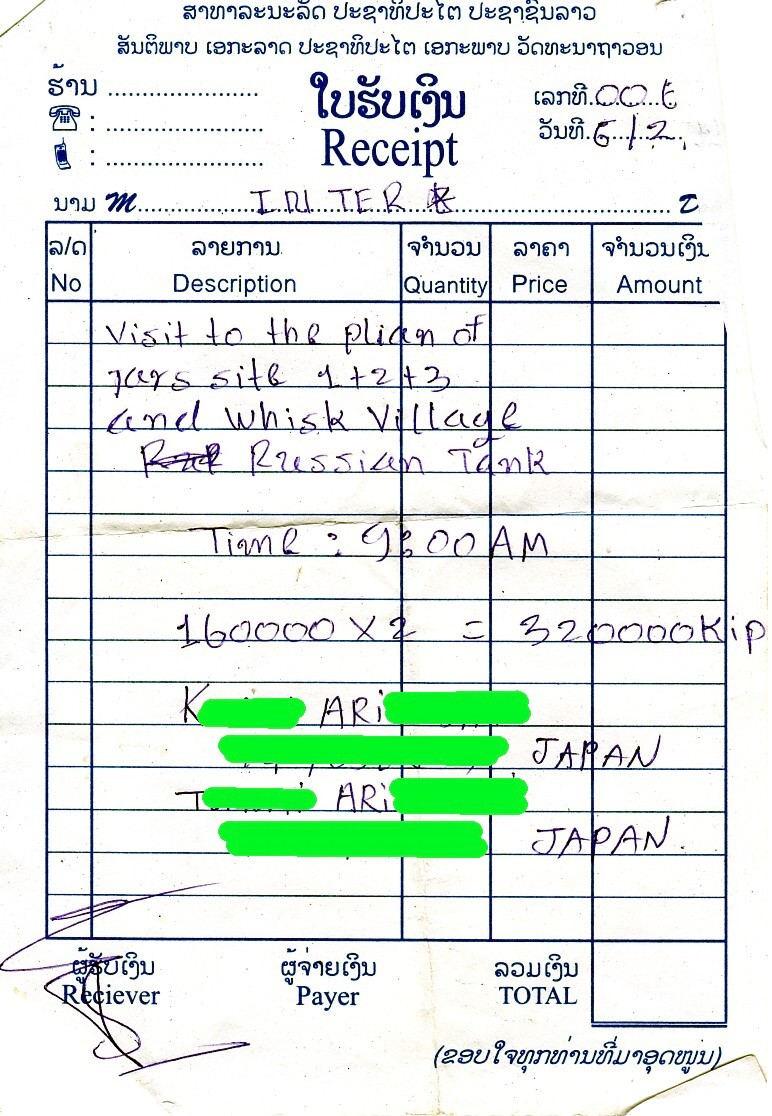 ສາທາລະນະລັດ ປະຊາທິປະໄຕ ປະຊາຊົນລາວ
ສັນຕິພາບ ເອກະລາດ ປະຊາທິປະໄຕ ເອກະພາບ ວັດທະນາຖາວອນ
ຮ້ານ
ໃບຮັບເງິນ
Receipt
ເລກທີ 006
ວັນທີ 6/2
ນາມ M INTER
ລ/ດ ລາຍການ ຈຳນວນ ລາຄາ ຈຳນວນເງິນ
No Description Quantity Price Amount
Visit to the plian of
Jars site 1+2+3
and Whisk Village
Russian Tank
Time : 9:00 AM
160000 X 2 = 320000 Kip
K ARi
JAPAN
T ARi
JAPAN
ຜູ້ຮັບເງິນ ຜູ້ຈ່າຍເງິນ ລວມເງິນ
Reciever Payer TOTAL
(ຂອບໃຈທຸກທ່ານທີ່ມາອຸດໜູນ)